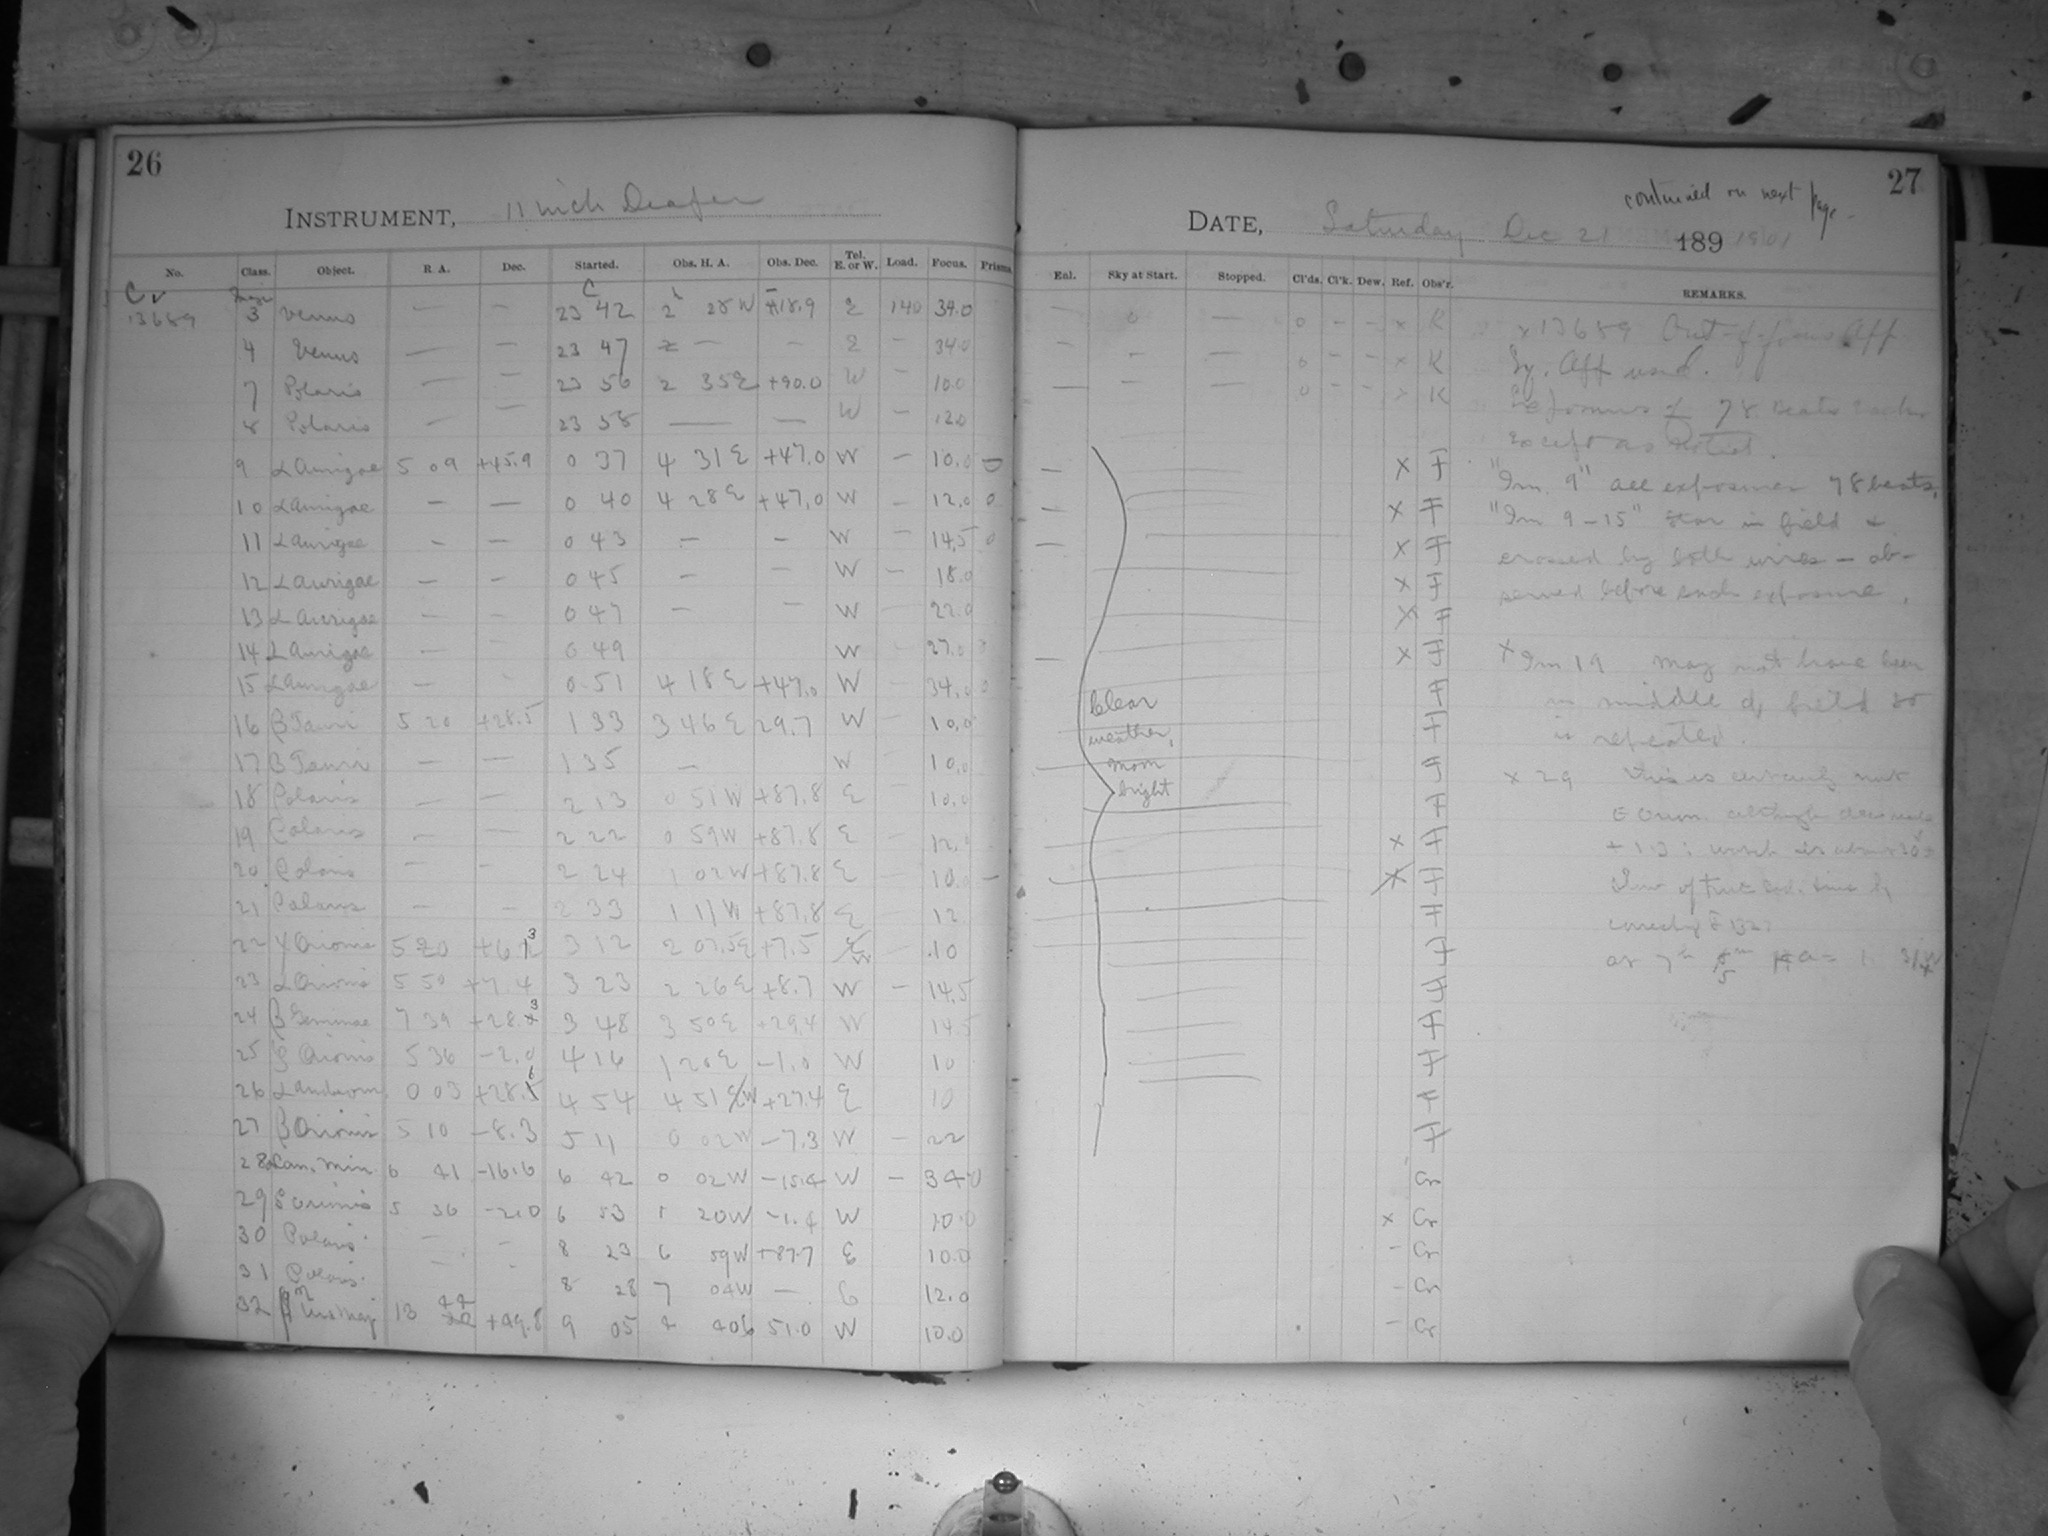 26
INSTRUMENT, 11 inch Draper
No. Class. Object. R. A. Dec. Started. Obs. H. A. Obs. Dec. Tel. E. or W. Load. Focus. Prisms
C
13689 3 Venus — — 23 42 2 28 W 18.9 E 140 34.0
4 Venus — — 23 47 — — E — 34.0
7 Polaris — — 23 56 2 35 E +90.0 W — 10.0
8 Polaris — — 23 58 — — W — 12.0
9 α Aurigae 5 09 +45.9 0 37 4 31 E +47.0 W — 10.0 —
10 α Aurigae — — 0 40 4 28 E +47.0 W — 12.0 0
11 α Aurigae — — 0 43 — — W — 14.5 0
12 α Aurigae — — 0 45 — — W — 18.0
13 α Aurigae — — 0 47 — — W 22.0
14 α Aurigae — 0 49 W 27.0
15 α Aurigae — 0 51 4 18 E +47.0 W 34.0 0
16 β Tauri 5 20 +28.5 1 33 3 46 E 29.7 W — 10.0
17 β Tauri — — 1 35 — W 10.0
18 Polaris — — 2 13 0 51 W +87.8 E 10.0
19 Polaris — — 2 22 0 59 W +87.8 E — 12.0
20 Polaris — — 2 24 1 02 W +87.8 E 10.0 —
21 Polaris — — 2 33 1 11 W +87.8 E 12
22 γ Orionis 5 20 +6.3 3 12 2 07.5 E +7.5 W 10
23 α Orionis 5 50 +7.4 3 23 2 26 E +8.7 W — 14.5
24 β Geminae 7 39 +28.3 3 48 3 50 E +29.4 W 14.5
25 Orionis 5 36 -2.0 4 16 1 20 E -1.0 W 10
26 α Androm. 0 03 +28.6 4 54 4 51 W +27.4 E 10
27 β Orionis 5 10 -8.3 5 11 0 02 W -7.3 W — 22
28 Can. Min. 6 41 -16.6 6 42 0 02 W -15.4 W — 34.0
29 Orionis 5 36 -2.0 6 53 1 20 W -1.4 W 10.0
30 Polaris — — 8 23 6 59 W +87.7 E 10.0
31 Polaris — — 8 28 7 04 W — E 12.0
32 η Urs Maj 13 44 +49.8 9 05 4 40 E 51.0 W 10.0
27
continued on next page
DATE, Saturday Dec 21 189 1901
Enl. Sky at Start. Stopped. Cl'ds. Cl'k. Dew. Ref. Obs'r. REMARKS.
— 0 — 0 — — x K x 13689 Out-of-focus App
— — — 0 — — x K Sy. App used.
— — — 0 — — x K Exposures of 78 beats each
except as noted.
x F "Im. 9" all exposures 78 beats.
x F "Im 9-15" Star in field &
x F crossed by both wires — ob-
x F served before each exposure.
x F
x F x Im 19 may not have been
F in middle of field so
F is repeated.
F x 29 This is certainly not
Clear
weather,
moon
bright
F Orion. although dec. reads
x F
x F
F
F
F
F
F
F
F
Cr
x Cr
- Cr
- Cr
- Cr